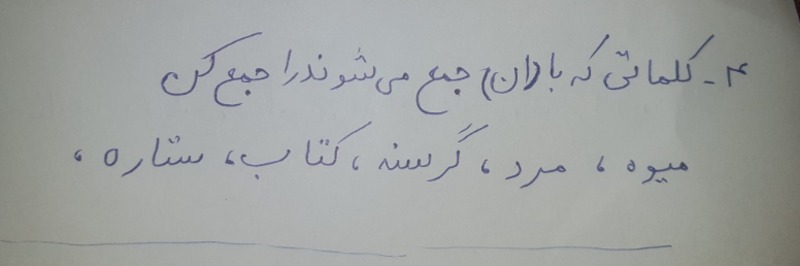 ۴- کلماتی که با (ان) جمع می شوند را جمع کن
میوه ، مرد ، گرسنه ، کتاب ، ستاره ،